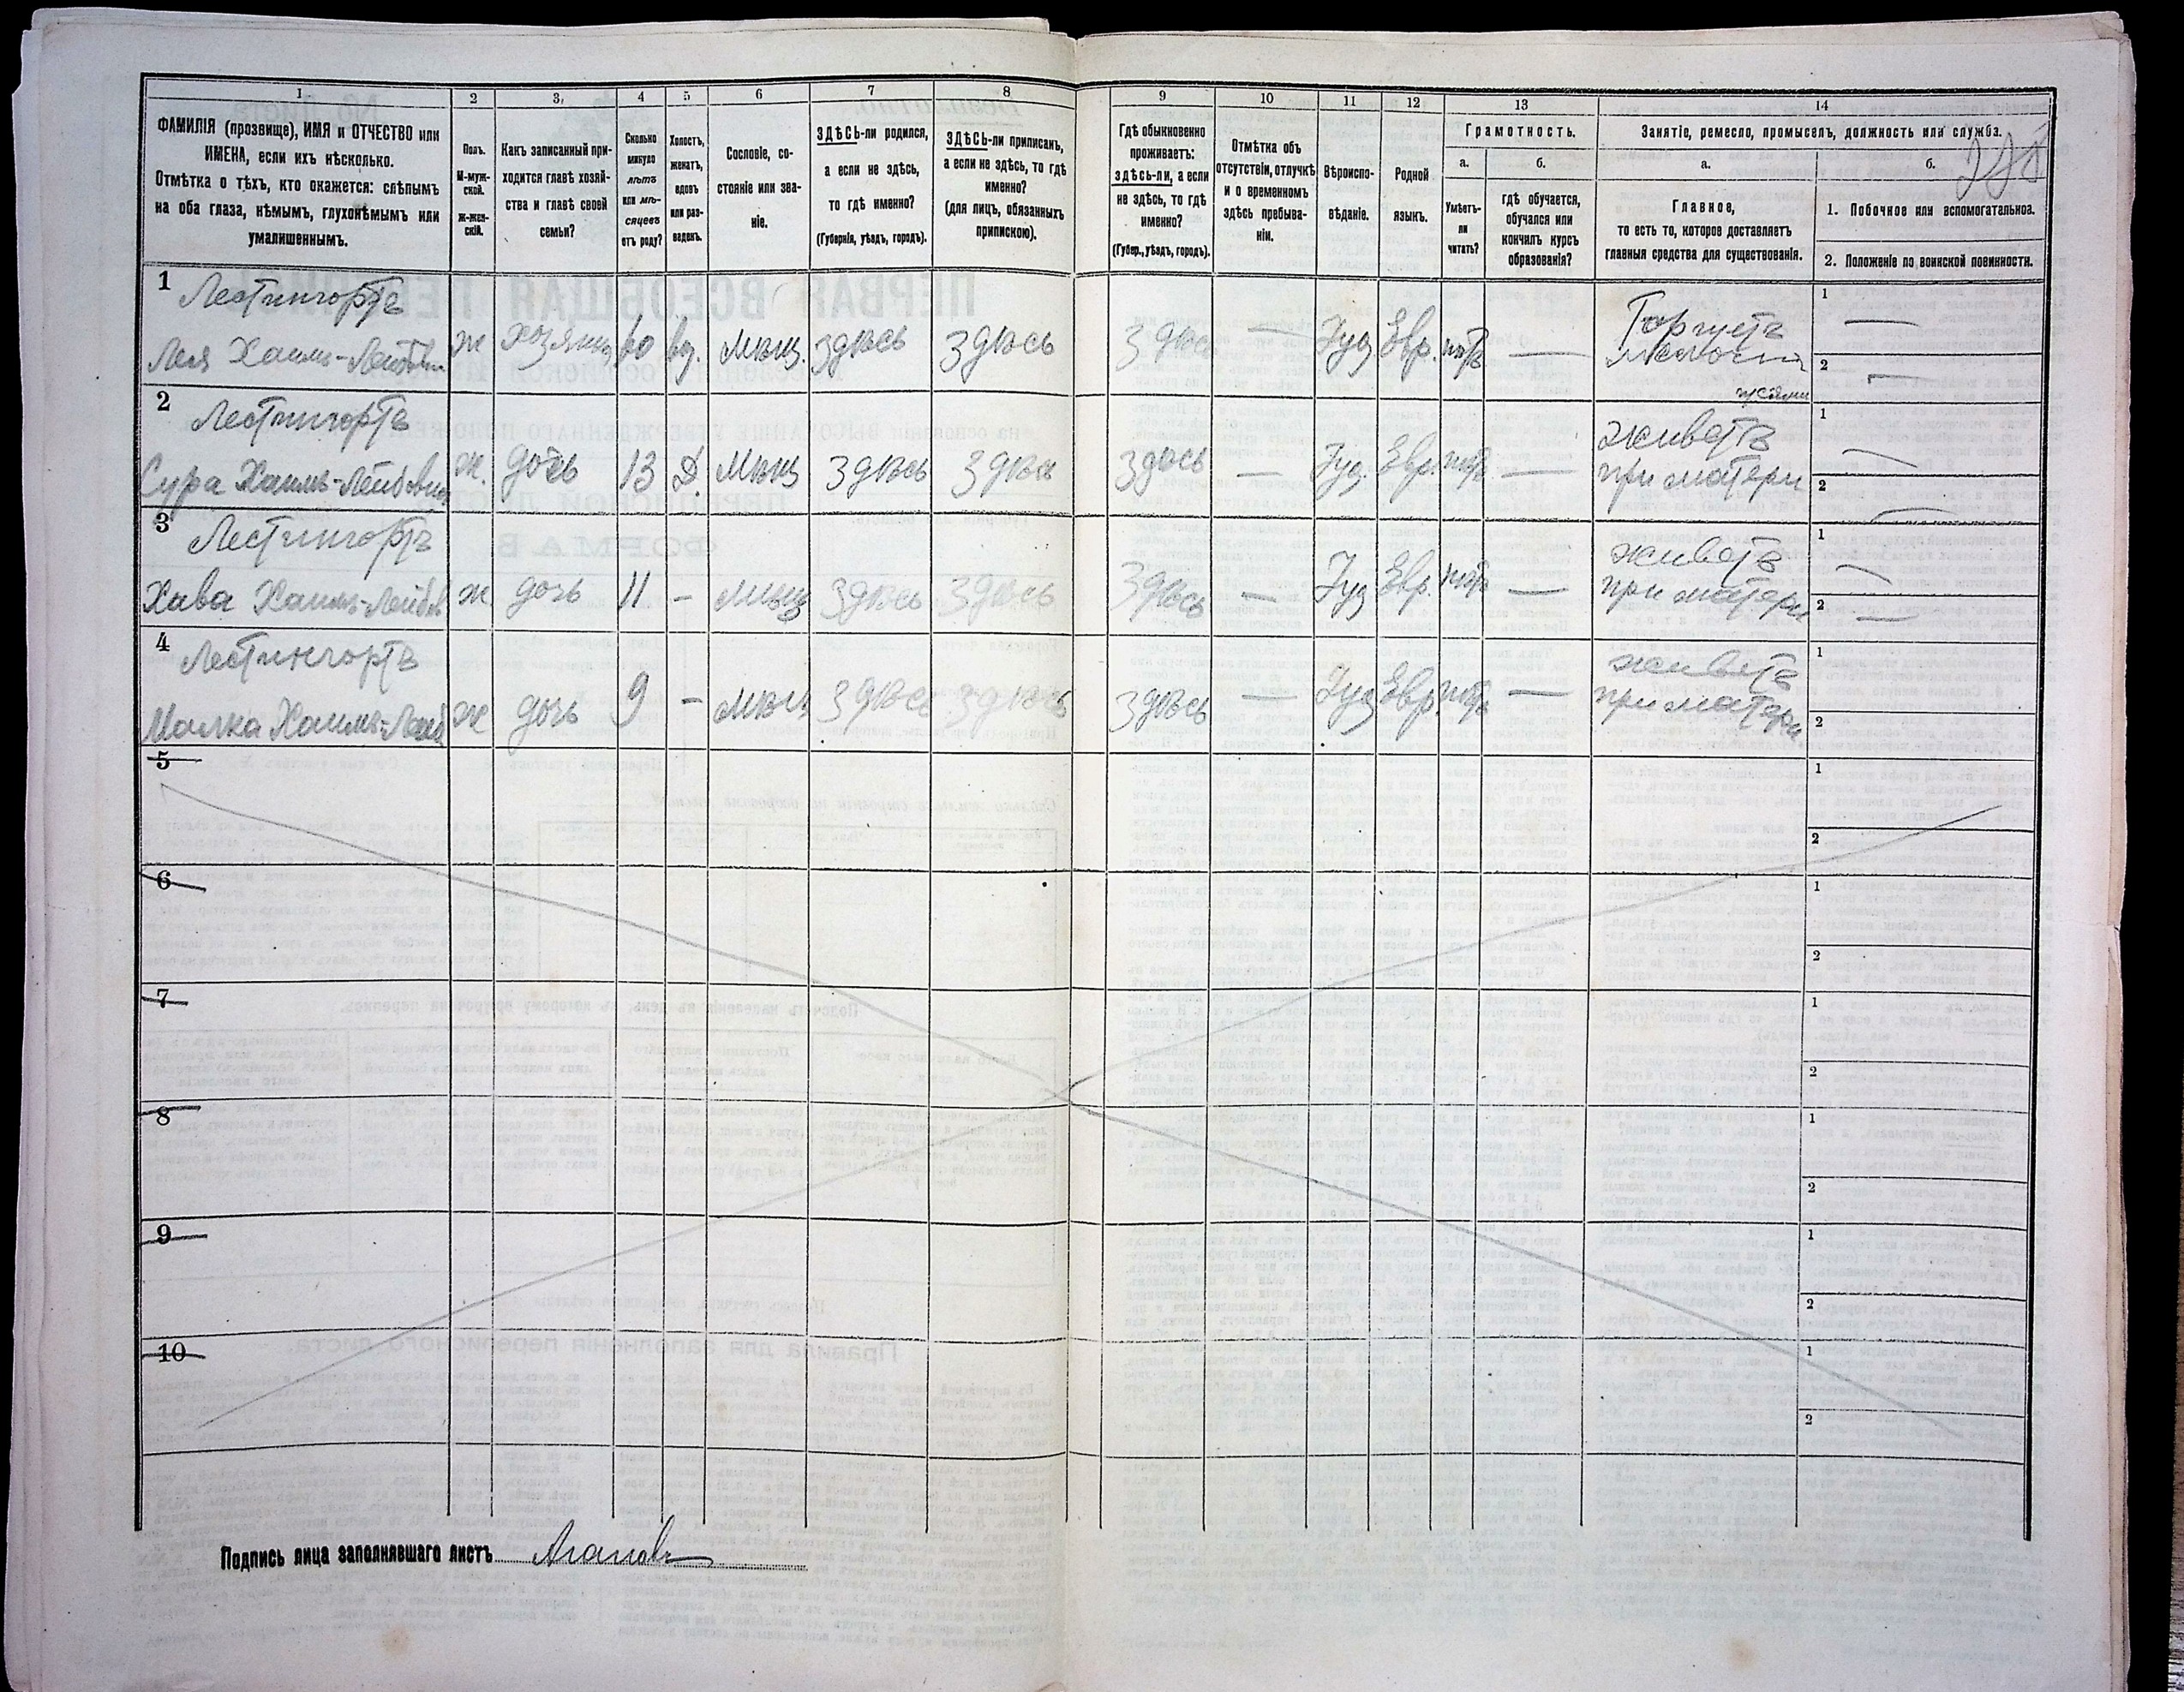 1
ФАМИЛІЯ (прозвище), ИМЯ и ОТЧЕСТВО или
ИМЕНА, если ихъ нѣсколько.
Отмѣтка о тѣхъ, кто окажется: слѣпымъ
на оба глаза, нѣмымъ, глухонѣмымъ или
умалишеннымъ.
2
Полъ.
М-муж-
ской.
ж-жен-
скій.
3
Какъ записанный при-
ходится главѣ хозяй-
ства и главѣ своей
семьи?
4
Сколько
минуло
лѣтъ
или мѣ-
сяцевъ
отъ роду?
5
Холостъ,
женатъ,
вдовъ
или раз-
веденъ.
6
Сословіе, со-
стояніе или зва-
ніе.
7
ЗДѢСЬ-ли родился,
а если не здѣсь,
то гдѣ именно?
(Губернія, уѣздъ, городъ).
8
ЗДѢСЬ-ли приписанъ,
а если не здѣсь, то гдѣ
именно?
(для лицъ, обязанныхъ
припискою).
9
Гдѣ обыкновенно
проживаетъ:
здѣсь-ли, а если
не здѣсь, то гдѣ
именно?
(Губер., уѣздъ, городъ).
10
Отмѣтка объ
отсутствіи, отлучкѣ
и о временномъ
здѣсь пребыва-
ніи.
11
Вѣроиспо-
вѣданіе.
12
Родной
языкъ.
13
Грамотность.
а.
Умѣетъ-
ли
читать?
б.
гдѣ обучается,
обучался или
кончилъ курсъ
образованія?
14
Занятіе, ремесло, промыселъ, должность или служба.
а.
Главное,
то есть то, которое доставляетъ
главныя средства для существованія.
б.
1. Побочное или вспомогательное.
2. Положеніе по воинской повинности.
1
Лестингортъ
Лея Хаимъ-
ж
хозяйка
вд.
Мѣщ.
здѣсь
здѣсь
здѣсь
—
Іуд
Евр.
нѣтъ
—
Торгуетъ
1
—
2
—
2
Лестингортъ
Сура Хаимъ-Лейбовна
ж.
дочь
13
Д
Мѣщ
здѣсь
здѣсь
здѣсь
—
Іуд.
Евр.
нѣтъ
—
живетъ
при матери
1
—
2
—
3
Лестингортъ
Хава Хаимъ-Лейбов
ж
дочь
11
–
Мѣщ
здѣсь
здѣсь
здѣсь
—
Іуд
Евр.
нѣтъ
—
живетъ
при матери
1
—
2
—
4
Лестингортъ
Малка Хаимъ-Лейб
ж
дочь
9
–
Мѣщ
здѣсь
здѣсь
здѣсь
—
Іуд
Евр.
нѣтъ
—
живетъ
при матери
1
2
5
1
2
6
1
2
7
1
2
8
1
2
9
1
2
10
1
2
Подпись лица заполнявшаго листъ Агаповъ